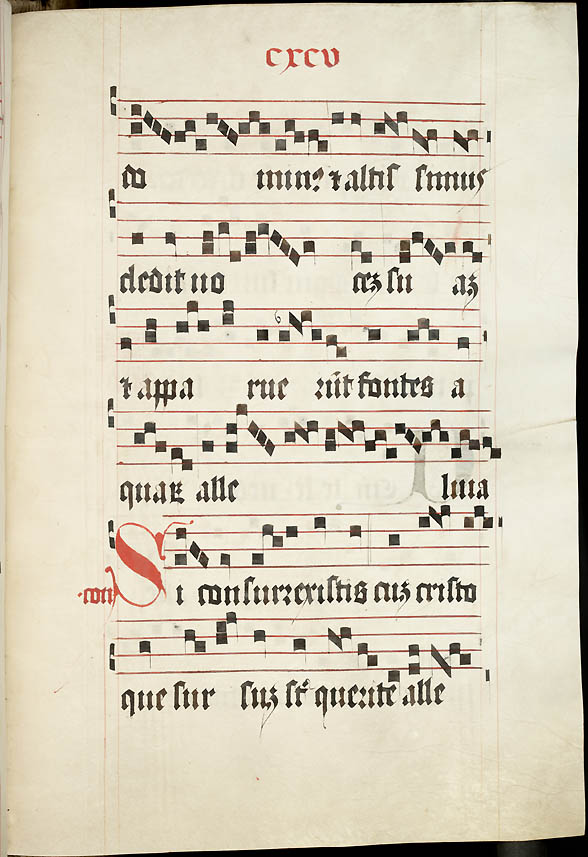 cxcv
do minꝰ ⁊ altissimus
dedit uo cēz su aꝫ
⁊ appa rue rūt fontes a
quaꝝ alle luia
·com Si consurrexistis cuꝫ cristo
que sur suꝫ st̄ querite alle